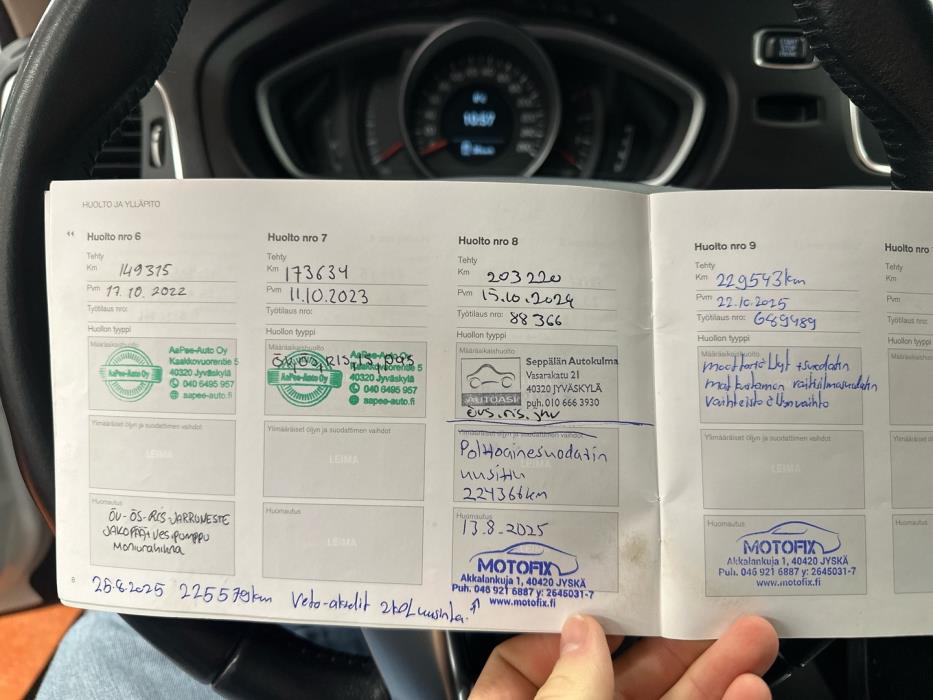 HUOLTO JA YLLÄPITO
Huolto nro 6
Tehty
Km 149315
Pvm 17.10.2022
Työtilaus nro:
Huollon tyyppi
Määräaikaishuolto
AaPee-Auto Oy
AaPee-Auto Oy
Kaakkovuorentie 5
40320 Jyväskylä
040 6495 957
aapee-auto.fi
Ylimääräiset öljyn ja suodattimen vaihdot
LEIMA
Huomautus
ÖV-ÖS-RIS-JARRUNESTE
JAKOPÄÄ+VesiPumppu
Moniurahihna
8
Huolto nro 7
Tehty
Km 173634
Pvm 11.10.2023
Työtilaus nro:
Huollon tyyppi
Määräaikaishuolto
AaPee-Auto Oy
AaPee-Auto Oy
Kaakkovuorentie 5
40320 Jyväskylä
040 6495 957
aapee-auto.fi
Ylimääräiset öljyn ja suodattimen vaihdot
LEIMA
Huomautus
LEIMA
Huolto nro 8
Tehty
Km 203220
Pvm 15.10.2024
Työtilaus nro: 88366
Huollon tyyppi
Määräaikaishuolto
Seppälän Autokulma
Vasarakatu 21
40320 JYVÄSKYLÄ
puh. 010 666 3930
AUTOASI
Ylimääräiset öljyn ja suodattimen vaihdot
Polttoainesuodatin
uusittu
224366km
Huomautus
13.8.2025
MOTOFIX
Akkalankuja 1, 40420 JYSKÄ
Puh. 046 921 6887 y: 2645031-7
www.motofix.fi
26.8.2025 225579km Veto-akselit 2kpl uusittu
Huolto nro 9
Tehty
Km 229543km
Pvm 22.10.2025
Työtilaus nro: 649489
Huollon tyyppi
Määräaikaishuolto
moottoriöljyt +suodatin
matkustamon raitisilmasuodatin
vaihteistoöljynvaihto
Ylimääräiset öljyn ja suodattimen vaihdot
LEIMA
Huomautus
MOTOFIX
Akkalankuja 1, 40420 JYSKÄ
Puh. 046 921 6887 y: 2645031-7
www.motofix.fi
Huolto nro
Tehty
Km
Pvm
Työtilaus nro:
Huollon
10:57
START
STOP